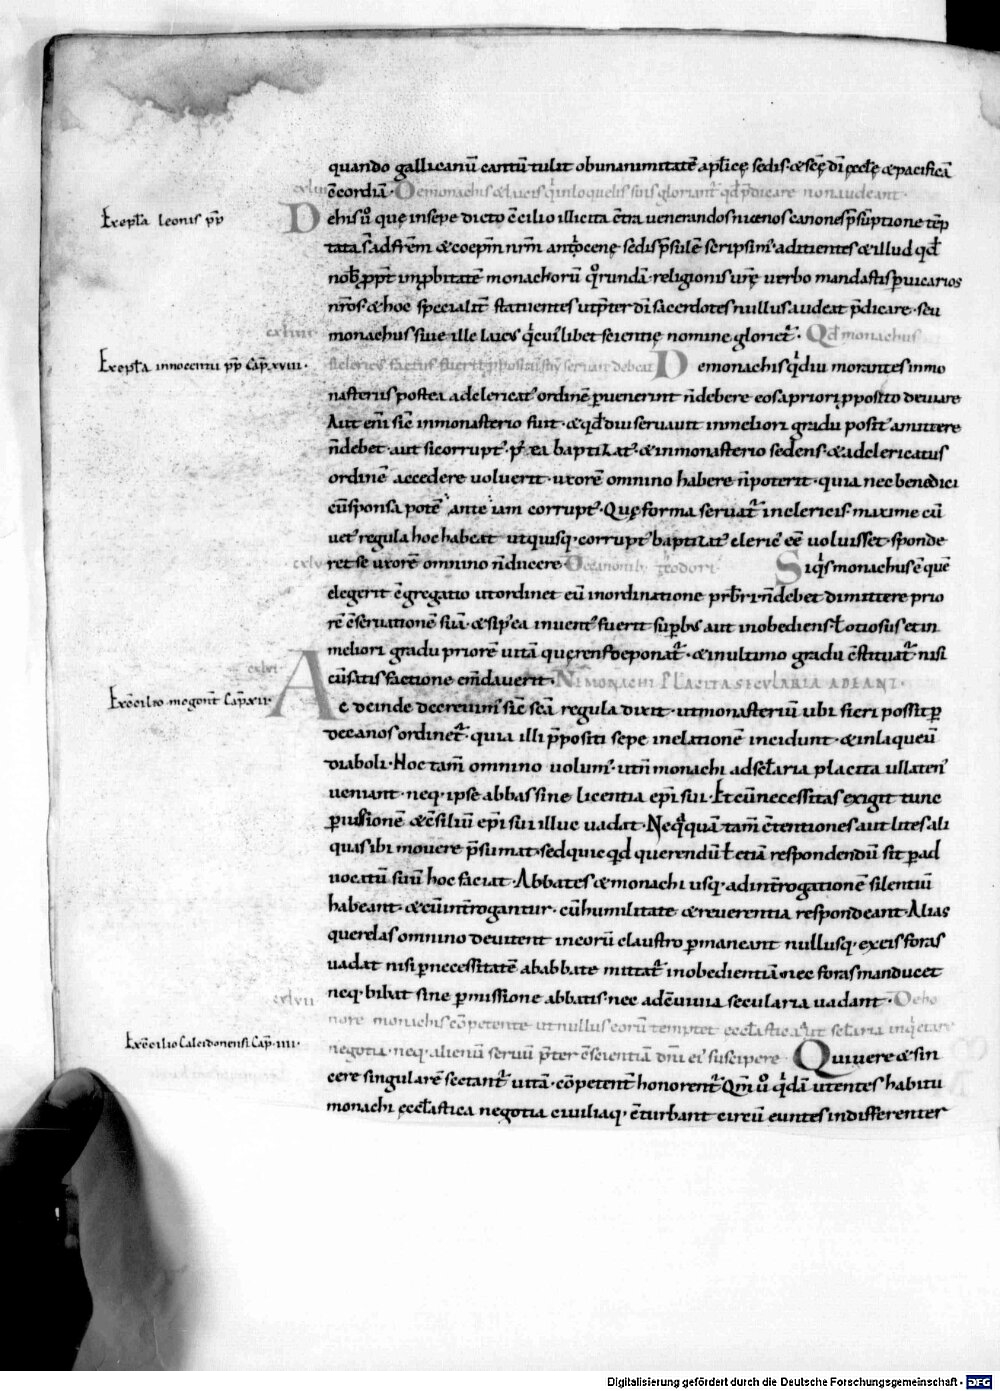 quando gallicanū cantū tulit ob unanimitatē aplicę sedis · & scę dī ęcclę & pacificā
c̄cordiā · De monachis & laicis qui in loquelis suis gloriant̄ qđ p̄dicare non audeant ·
Ex epl̄a leonis pp̄
De his ū quę in sepe dicto c̄cilio illicita c̄tra venerandos nicenos canones p̄sūptione tēp
tata s̄ ad frēm & coepm̄ nrm̄ antiocenę sedis p̄sulē scripsim᾿ adicientes & illud qđ
nob̄ ppt̄ inprobitatē monachorū quorundā · religionis urę verbo mandastis p vicarios
nr̄os · & hoc specialit̄ statuentes ut p̄ter dn̄i sacerdotes nullus audeat p̄dicare · seu
monachus sive ille laic᾿ qui cuil̄ibet scientię nomine gloriet̄ · Qđ monachus
Ex epl̄a innocentii pp̄ Cap̄ xviii ·
clericus factus servare debeat De monachis qui diu morantes in mo
nasteriis postea ad clericat᾿ ordinē pervenerint n̄ debere eos a priori pposito deviare
Aut enī sic̄ in monasterio fuit · & qđ diu servavit in meliori gradu posit᾿ amittere
n̄ debet · aut si corrupt᾿ · p᾿ ea baptizat᾿ · & in monasterio sedens · & ad clericatus
ordinē accedere voluerit · uxorē omnino habere n̄ poterit · quia nec benedici
cū sponsa potē ante iam corrupt᾿ · Quę forma servat̄ in clericis · maxime cū
vet᾿ regula hoc habeat ut quisq· corrupt᾿ baptizat᾿ cleric᾿ eē voluisset · sponde
cxlv
ret se uxorē omnino n̄ ducere De canonib᾿ teodori Siquis monachus ē quē
elegerit c̄gregatio ut ordinet᾿ eū in ordinatione prb̄ri · n̄ debet dimittere prio
rē c̄servationē suā · & si p᾿ ea invent᾿ fuerit supbus aut inobediens · ł otiosus et in
meliori gradu priorē vitā quęrens · deponat̄ · & in ultimo gradu c̄stituat̄ · nisi
cxlvi
cū satisfactione em̄daverit · NE MONACHI PLACITA SECULARIA ADEANT ·
Ex c̄cilio mogont̄ Cap̄ xii ·
Ac deinde decrevim᾿ sic̄ scā regula dixit · ut monasteriū ubi fieri possit p
decanos ordinet̄ · quia illi p̄positi sepe in elationē incidunt · & in laqueū
diaboli · Hoc tam̄ omnino volum᾿ · ut n̄ monachi ad sclaria placita ullaten᾿
veniant · neq· ipse abbas sine licentia epi sui · Et cū necessitas exigit tunc
pmissionē & c̄siliū epi sui illuc vadat · Nequaquā tam̄ c̄tentiones aut lites ali
quas ibi movere p̄sumat · sed quicqđ querendū ł etiā respondendū sit p ad
vocatū suū hoc faciat · Abbates & monachi usq· ad int̄rogationē silentiū
habeant · & cū int̄rogantur · cū humilitate & reverentia respondeant · Alias
querelas omnino devitent in eorū claustro pmaneant nullusq· ex eis foras
vadat nisi p necessitatē ab abbate mittat̄ in obedientiā · nec foras manducet
neq· bibat sine pmissione abbatis · nec ad c̄vivia secularia vadant · De ho
cxlvii
nore monachis cōpetente ut nullus eorū temptet eccl̄astica aut sclaria inquietare
Ex c̄cilio Calcidonensi Cap̄ iiii ·
negotia · neq· alienū servū p̄ter c̄scientiā dn̄i ei᾿ suscipere · Qui vere & sin
cere singularē sectant̄ vitā · cōpetent̄ honorent̄ · Qm̄ ū quidā utentes habitu
monachi eccl̄astica negotia civiliaq· c̄turbant circū euntes indifferenter
Digitalisierung gefördert durch die Deutsche Forschungsgemeinschaft - DFG